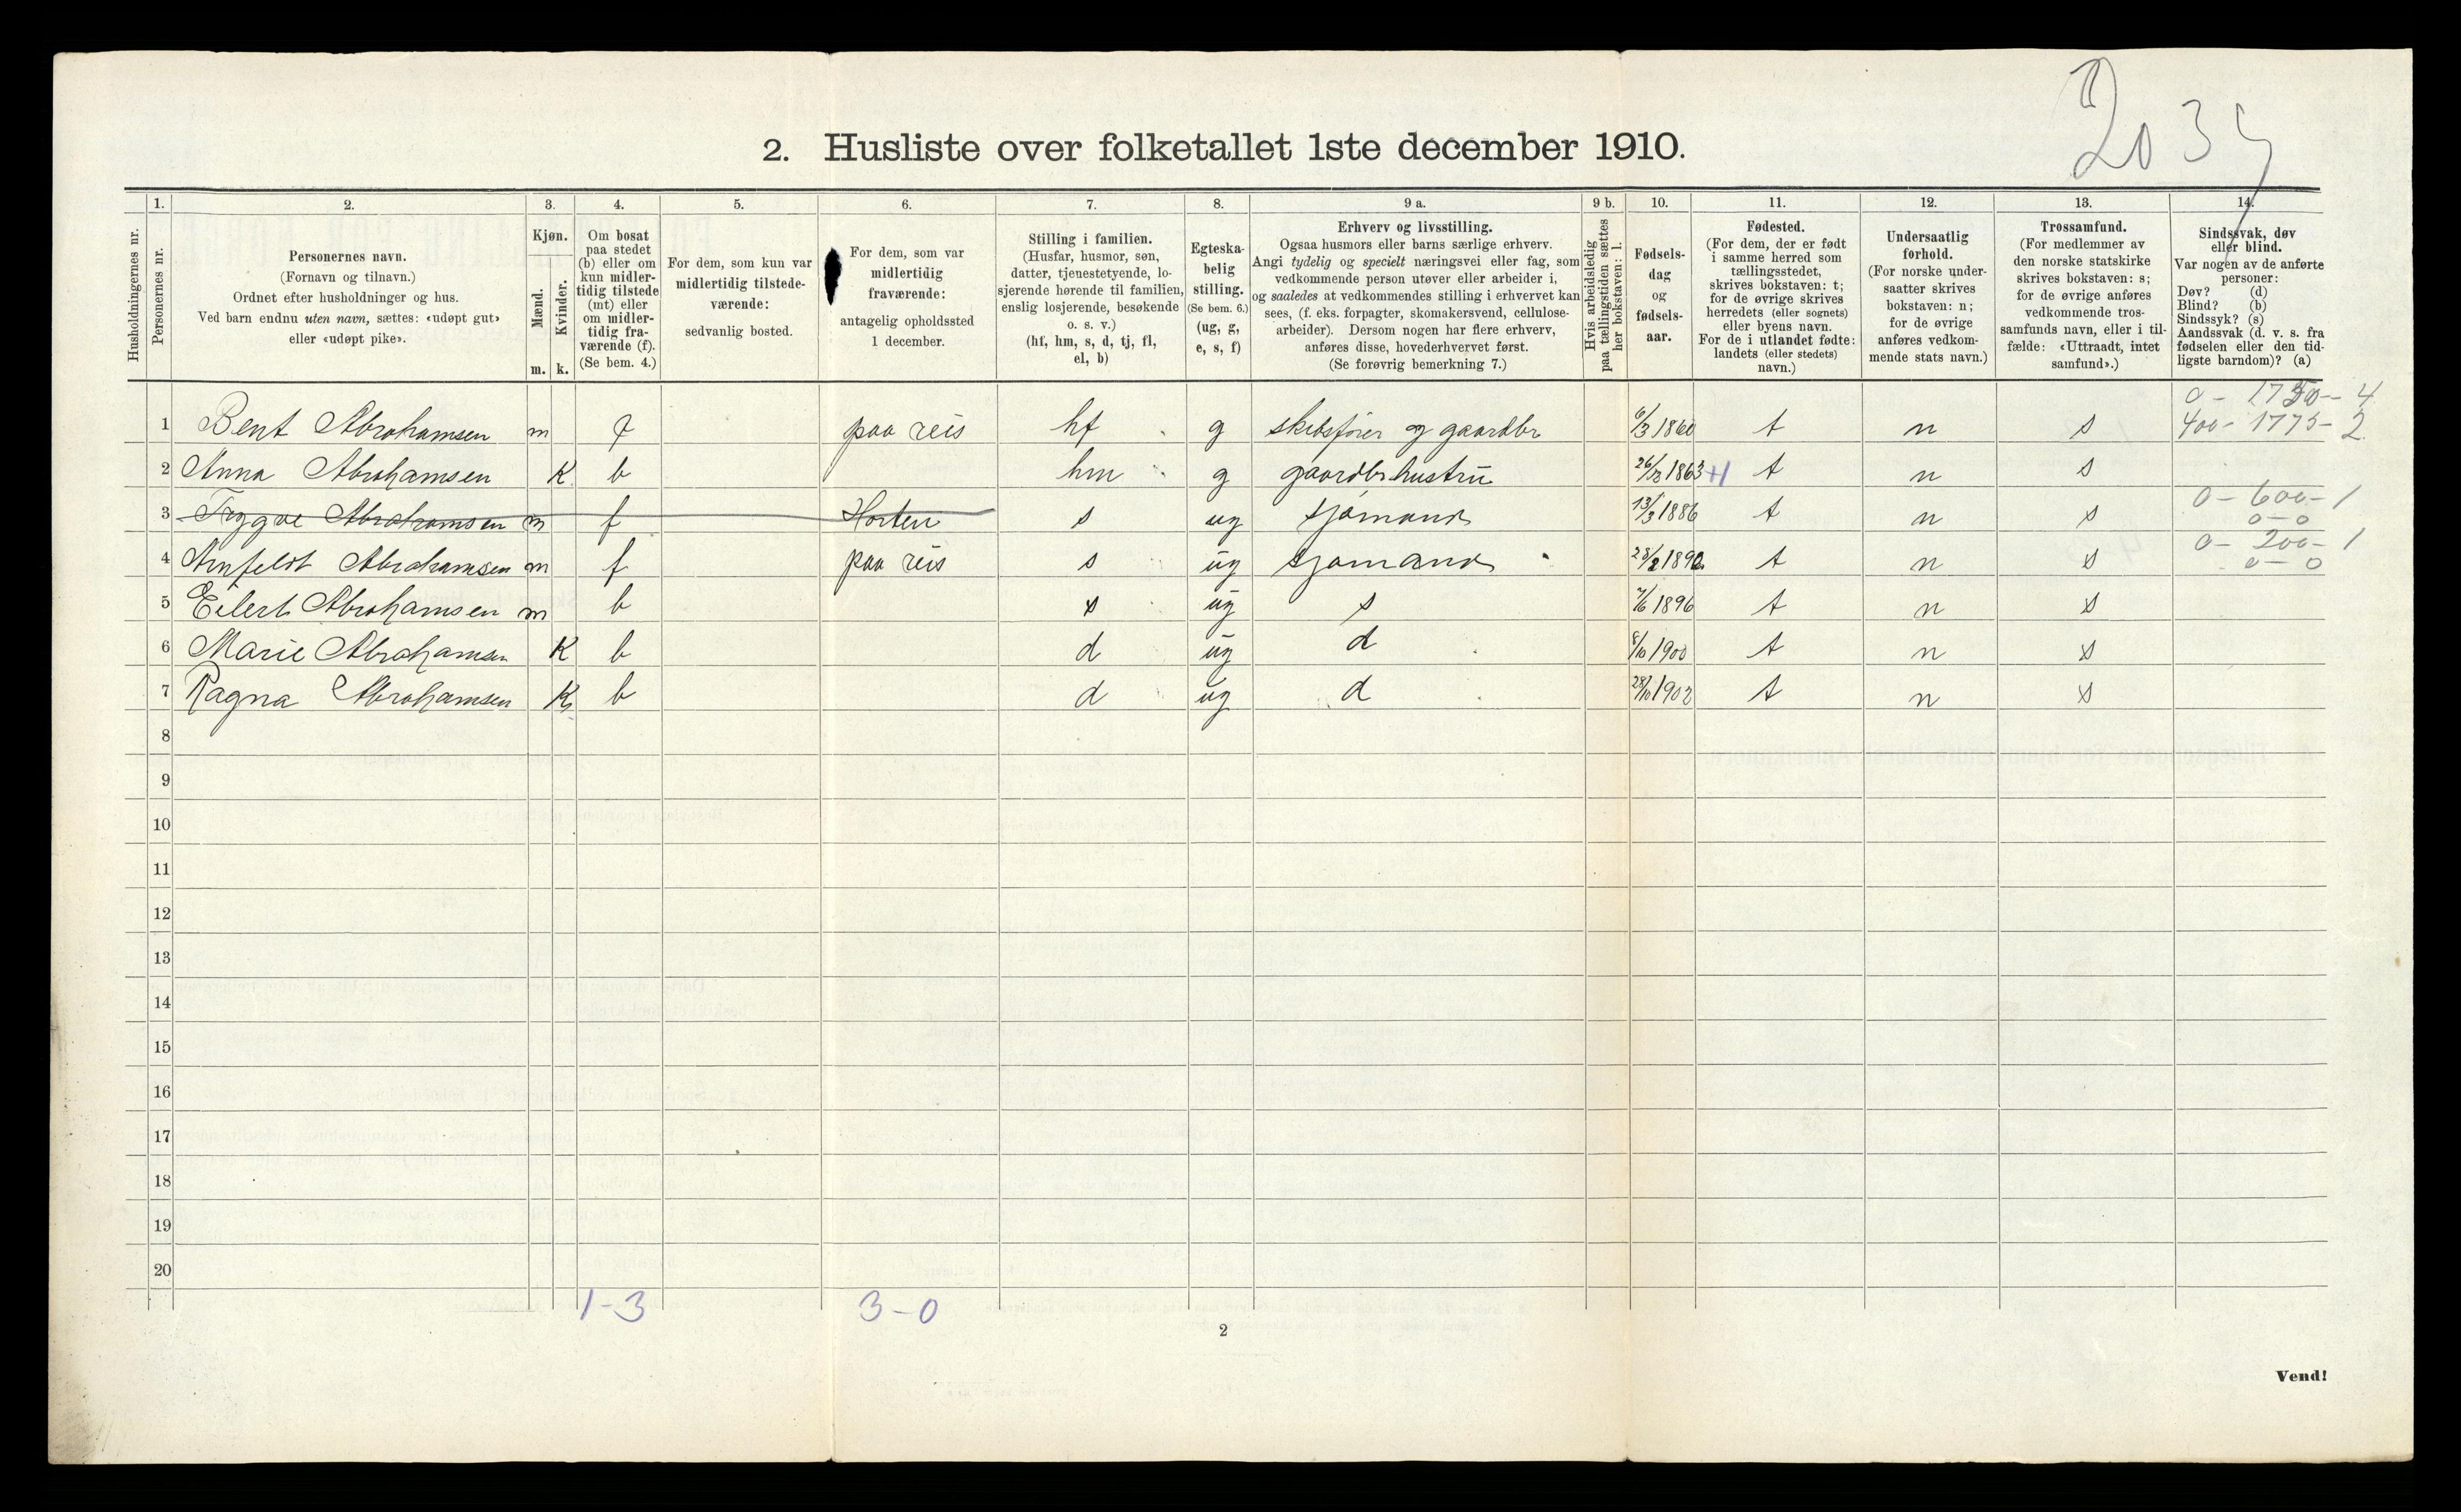 2035
2. Husliste over folketallet 1ste december 1910.
Husholdningernes nr.
1. Personernes nr.
2. Personernes navn.
(Fornavn og tilnavn.)
Ordnet efter husholdninger og hus.
Ved barn endnu uten navn, sættes: «udøpt gut»
eller «udøpt pike».
3. Kjøn.
Mænd. m.
Kvinder. k.
4. Om bosat
paa stedet
(b) eller om
kun midler-
tidig tilstede
(mt) eller
om midler-
tidig fra-
værende (f).
(Se bem. 4.)
5. For dem, som kun var
midlertidig tilstede-
værende:
sedvanlig bosted.
6. For dem, som var
midlertidig
fraværende:
antagelig opholdssted
1 december.
7. Stilling i familien.
(Husfar, husmor, søn,
datter, tjenestetyende, lo-
sjerende hørende til familien,
enslig losjerende, besøkende
o. s. v.)
(hf, hm, s, d, tj, fl,
el, b)
8. Egteska-
belig
stilling.
(Se bem. 6.)
(ug, g,
e, s, f)
9 a. Erhverv og livsstilling.
Ogsaa husmors eller barns særlige erhverv.
Angi tydelig og specielt næringsvei eller fag, som
vedkommende person utøver eller arbeider i,
og saaledes at vedkommendes stilling i erhvervet kan
sees, (f. eks. forpagter, skomakersvend, cellulose-
arbeider). Dersom nogen har flere erhverv,
anføres disse, hovederhvervet først.
(Se forøvrig bemerkning 7.)
9 b. Hvis arbeidsledig
paa tællingstiden sættes
her bokstaven: l.
10. Fødsels-
dag
og
fødsels-
aar.
11. Fødested.
(For dem, der er født
i samme herred som
tællingsstedet,
skrives bokstaven: t;
for de øvrige skrives
herredets (eller sognets)
eller byens navn.
For de i utlandet fødte:
landets (eller stedets)
navn.)
12. Undersaatlig
forhold.
(For norske under-
saatter skrives
bokstaven: n;
for de øvrige
anføres vedkom-
mende stats navn.)
13. Trossamfund.
(For medlemmer av
den norske statskirke
skrives bokstaven: s;
for de øvrige anføres
vedkommende tros-
samfunds navn, eller i til-
fælde: «Uttraadt, intet
samfund».)
14. Sindssvak, døv
eller blind.
Var nogen av de anførte
personer:
Døv? (d)
Blind? (b)
Sindssyk? (s)
Aandssvak (d. v. s. fra
fødselen eller den tid-
ligste barndom)? (a)
1 Bent Abrahamsen m f paa reis hf g skibsfører og gaardbr 6/3 1860 t n s 400 - 1775 - 2
2 Anna Abrahamsen K b hm g gaardbr hustru 1863 t n s
3 Tryggve Abrahamsen m f Horten s ug sjømand 13/3 1886 t n s 0 - 600 - 1
0 - 0
4 Arnfeldt Abrahamsen m f paa reis s ug sjømand t n s 0 - 200 - 1
0 - 0
5 Eilert Abrahamsen m b s ug s 7/6 1896 t n s
6 Marie Abrahamsen K b d ug d 8/10 1900 t n s
7 Ragna Abrahamsen K b d ug d 28/10 1902 t n s
8
9
10
11
12
13
14
15
16
17
18
19
20
1-3 3-0
2
Vend!